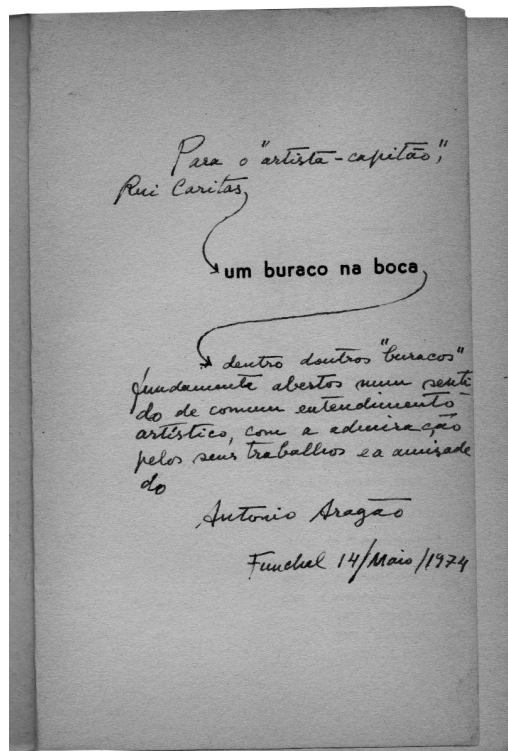 Para o "artista-capitão",
Rui Caritas,
um buraco na boca,
dentro doutros "buracos"
fundamente abertos num senti
do de comum entendimento
artístico, com a admiração
pelos seus trabalhos e a amizade
do
António Aragão
Funchal 14/Maio/1974